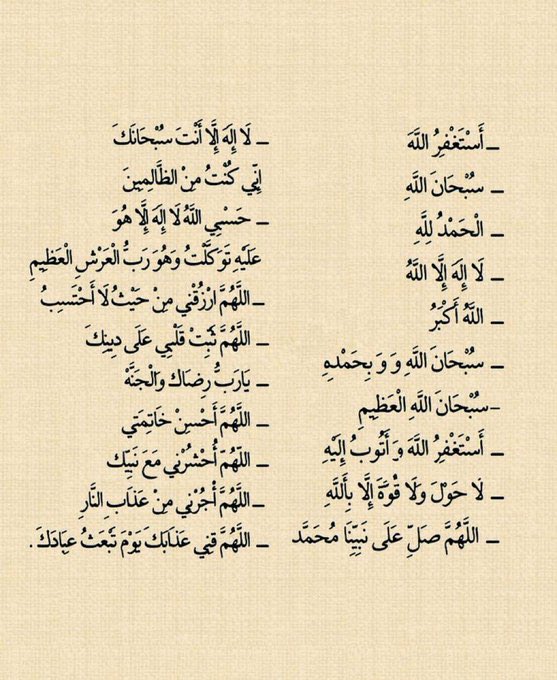 ـ أَسْتَغْفِرُ اللَّهَ
ـ سُبْحَانَ اللَّهِ
ـ الْحَمْدُ لِلَّهِ
ـ لَا إِلَهَ إِلَّا اللَّهُ
ـ اللَّهُ أَكْبَرُ
ـ سُبْحَانَ اللَّهِ وَ وَ بِحَمْدِهِ
-سُبْحَانَ اللَّهِ الْعَظِيمِ
ـ أَسْتَغْفِرُ اللَّهَ وَ أَتُوبُ إِلَيْهِ
ـ لَا حَوْلَ وَلَا قُوَّةَ إِلَّا بِاَللَّهِ
ـ اللَّهُمَّ صَلِّ عَلَى نَبِيِّنَا مُحَمَّد
ـ لَا إِلَهَ إِلَّا أَنْتَ سُبْحَانَكَ
إِنِّي كُنْتُ مِنْ الظَّالِمِينَ
ـ حَسْبِي اللَّهُ لَا إِلَهَ إِلَّا هُوَ
عَلَيْهِ تَوَكَّلْتُ وَهُوَ رَبُّ الْعَرْشِ الْعَظِيمِ
ـ اللَّهُمَّ ارْزُقْنِي مِنْ حَيْثُ لَا أَحْتَسِبُ
ـ اللَّهُمَّ ثَبِتْ قَلْبِي عَلَى دِينِكَ
ـ يَارَبُّ رِضَاك وَالْجَنَّهْ
ـ اللَّهُمَّ أَحْسِنْ خَاتِمَتِي
ـ اللَّهُمَّ أُحْشُرْنِي مَعَ نَبِيِّك
ـ اللَّهُمَّ أَجْرْنِي مِنْ عَذَابِ النَّارِ
ـ اللَّهُمَّ قِنِي عَذَابَكَ يَوْمَ تَبْعَثُ عِبَادَكَ .